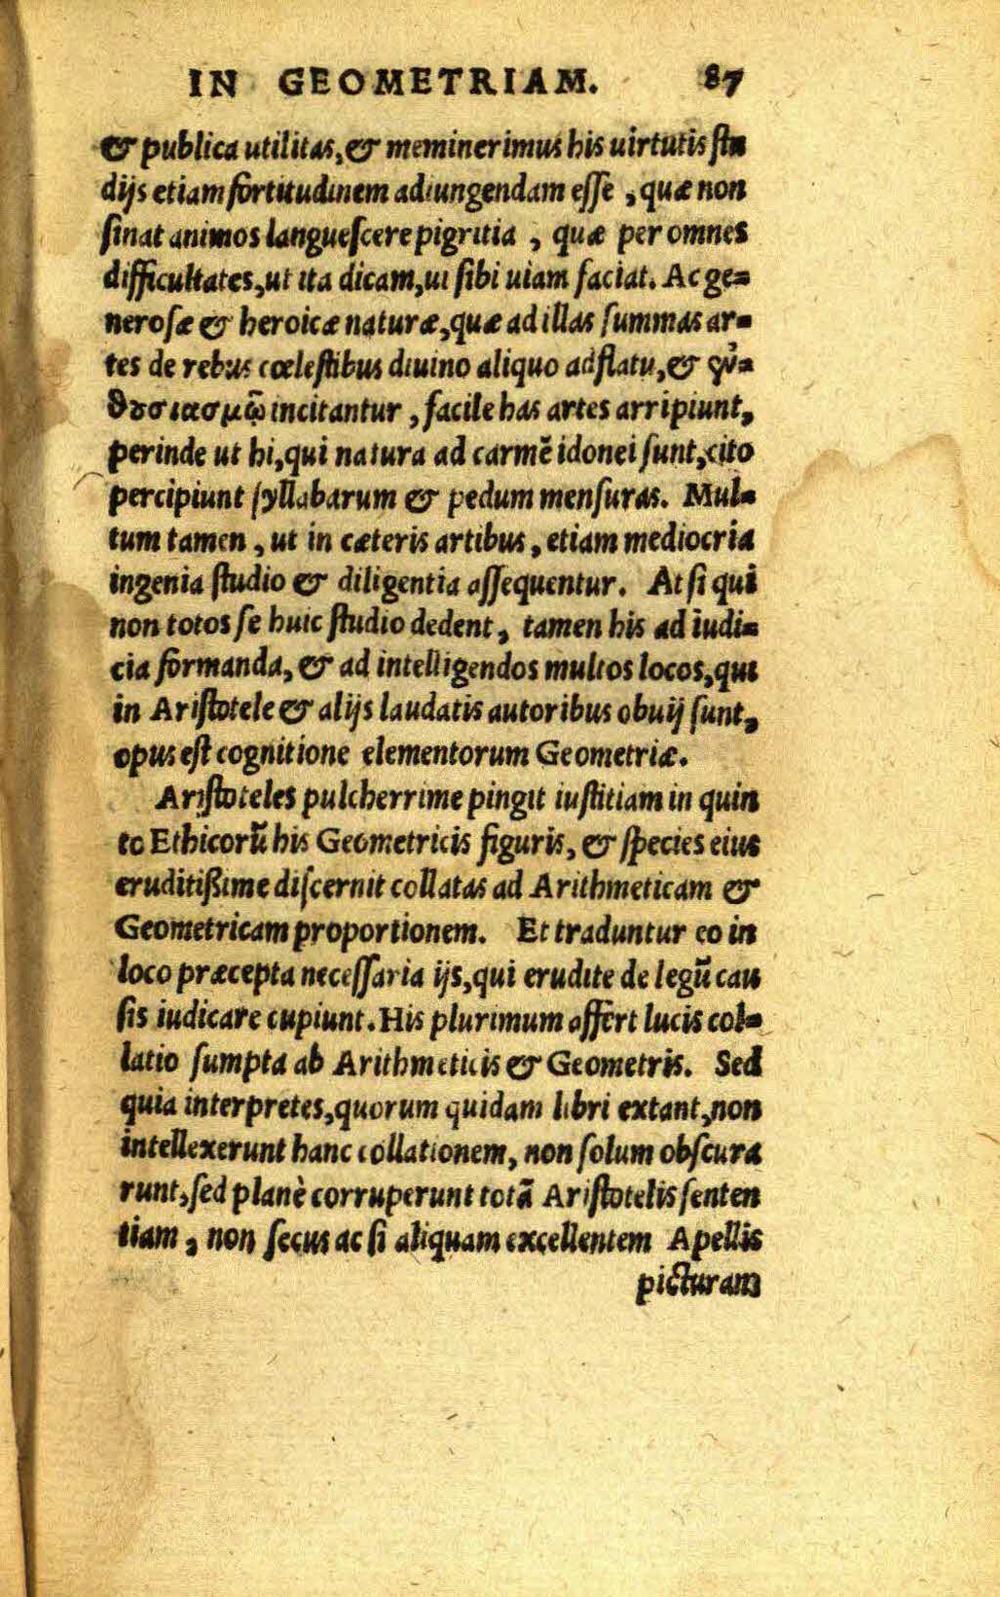 IN GEOMETRIAM. 87
& publica utilitas, & meminerimus his uirtutis ſtu
dijs etiam fortitudinem adiungendam eſſe, quæ non
ſinat animos langueſcere pigritia, quæ per omnes
difficultates, ut ita dicam, ui ſibi uiam faciat. Ac ge=
neroſæ & heroicæ naturæ, quæ ad illas ſummas ar=
tes de rebus cœleſtibus diuino aliquo adflatu, & ἐν=
θουσιασμῷ incitantur, facile has artes arripiunt,
perinde ut hi, qui natura ad carmē idonei ſunt, cito
percipiunt ſyllabarum & pedum menſuras. Mul=
tum tamen, ut in cæteris artibus, etiam mediocria
ingenia ſtudio & diligentia aſſequentur. At ſi qui
non totos ſe huic ſtudio dedent, tamen his ad iudi=
cia formanda, & ad intelligendos multos locos, qui
in Ariſtotele & alijs laudatis autoribus obuij ſunt,
opus eſt cognitione elementorum Geometriæ.
Ariſtoteles pulcherrime pingit iuſtitiam in quin
to Ethicorū his Geometricis figuris, & ſpecies eius
eruditißime diſcernit collatas ad Arithmeticam &
Geometricam proportionem. Et traduntur eo in
loco præcepta neceſſaria ijs, qui erudite de legū cau
ſis iudicare cupiunt. His plurimum affert lucis col=
latio ſumpta ab Arithmeticis & Geometris. Sed
quia interpretes, quorum quidam libri extant, non
intellexerunt hanc collationem, non ſolum obſcura
runt, ſed planè corruperunt totā Ariſtotelis ſenten
tiam, non ſecus ac ſi aliquam excellentem Apellis
picturam